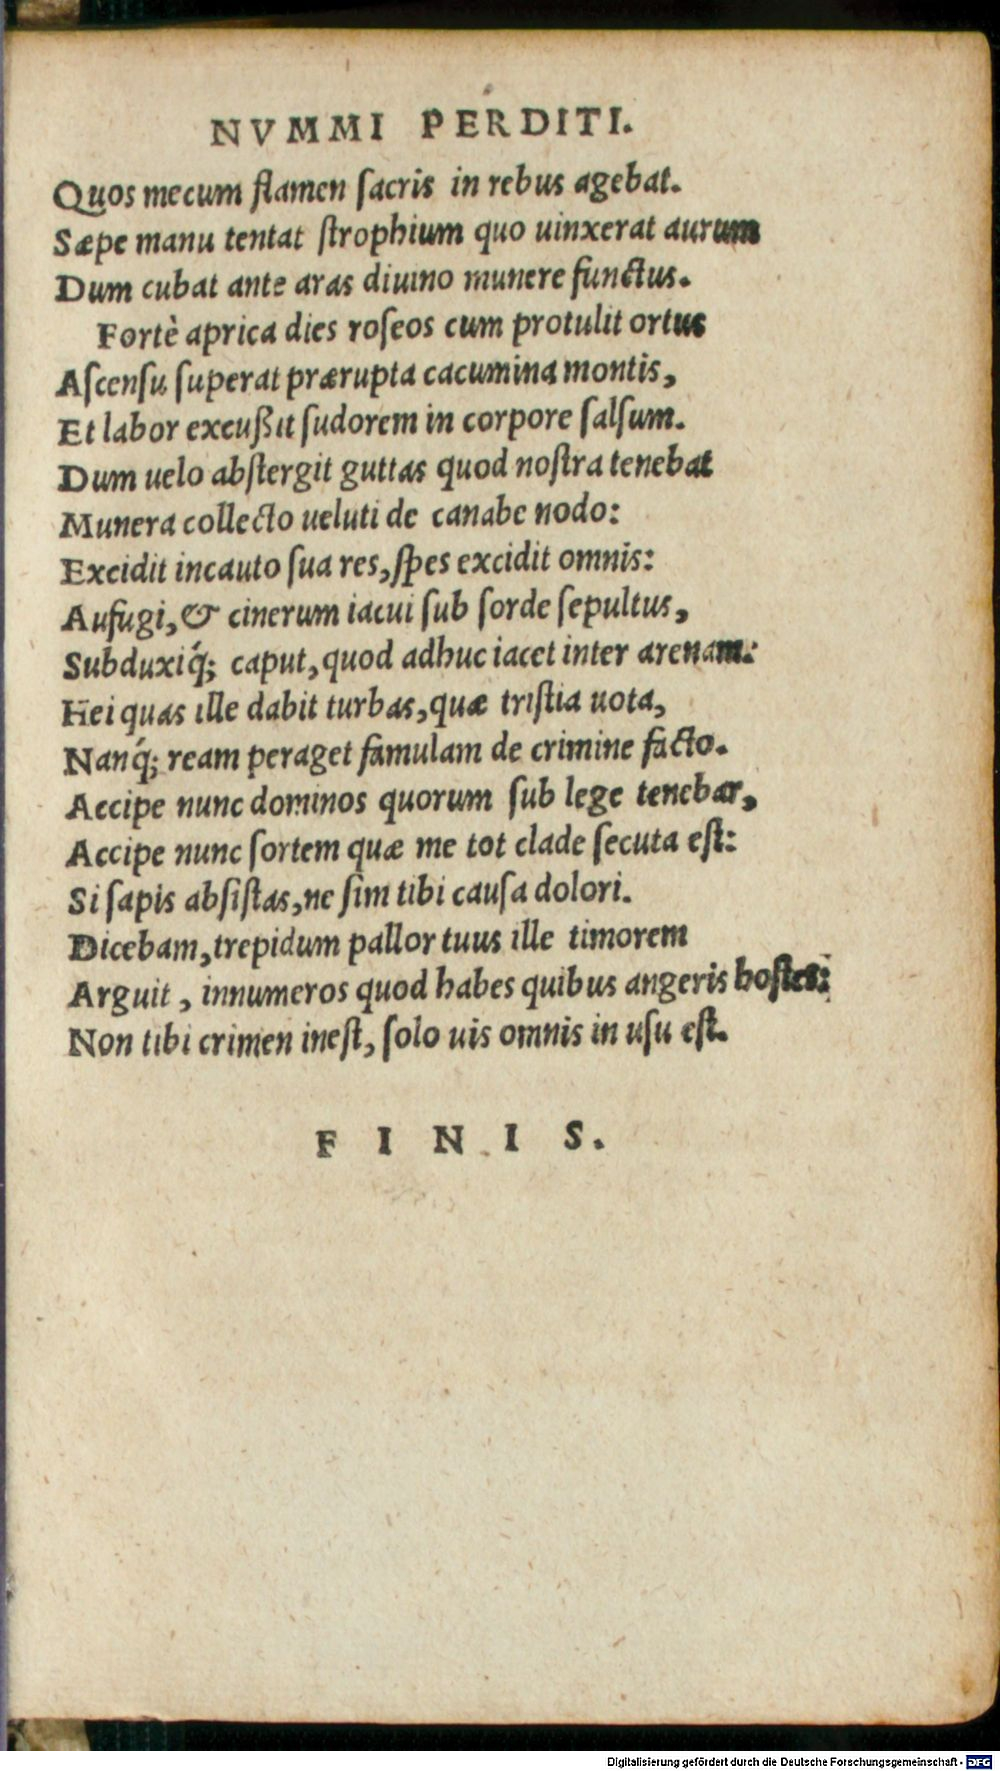 NVMMI PERDITI.
Quos mecum flamen ſacris in rebus agebat.
Sæpe manu tentat ſtrophium quo uinxerat aurum
Dum cubat ante aras diuino munere functus.
Fortè aprica dies roſeos cum protulit ortus
Aſcenſu ſuperat prærupta cacumina montis,
Et labor excußit ſudorem in corpore ſalſum.
Dum uelo abſtergit guttas quod noſtra tenebat
Munera collecto ueluti de canabe nodo:
Excidit incauto ſua res, ſpes excidit omnis:
Aufugi, & cinerum iacui ſub ſorde ſepultus,
Subduxiq́; caput, quod adhuc iacet inter arenam:
Hei quas ille dabit turbas, quæ triſtia uota,
Nanq́; ream peraget famulam de crimine facto.
Accipe nunc dominos quorum ſub lege tenebar,
Accipe nunc ſortem quæ me tot clade ſecuta eſt:
Si ſapis abſiſtas, ne ſim tibi cauſa dolori.
Dicebam, trepidum pallor tuus ille timorem
Arguit, innumeros quod habes quibus angeris hoſtes:
Non tibi crimen ineſt, ſolo uis omnis in uſu eſt.
FINIS.
Digitalisierung gefördert durch die Deutsche Forschungsgemeinschaft - DFG